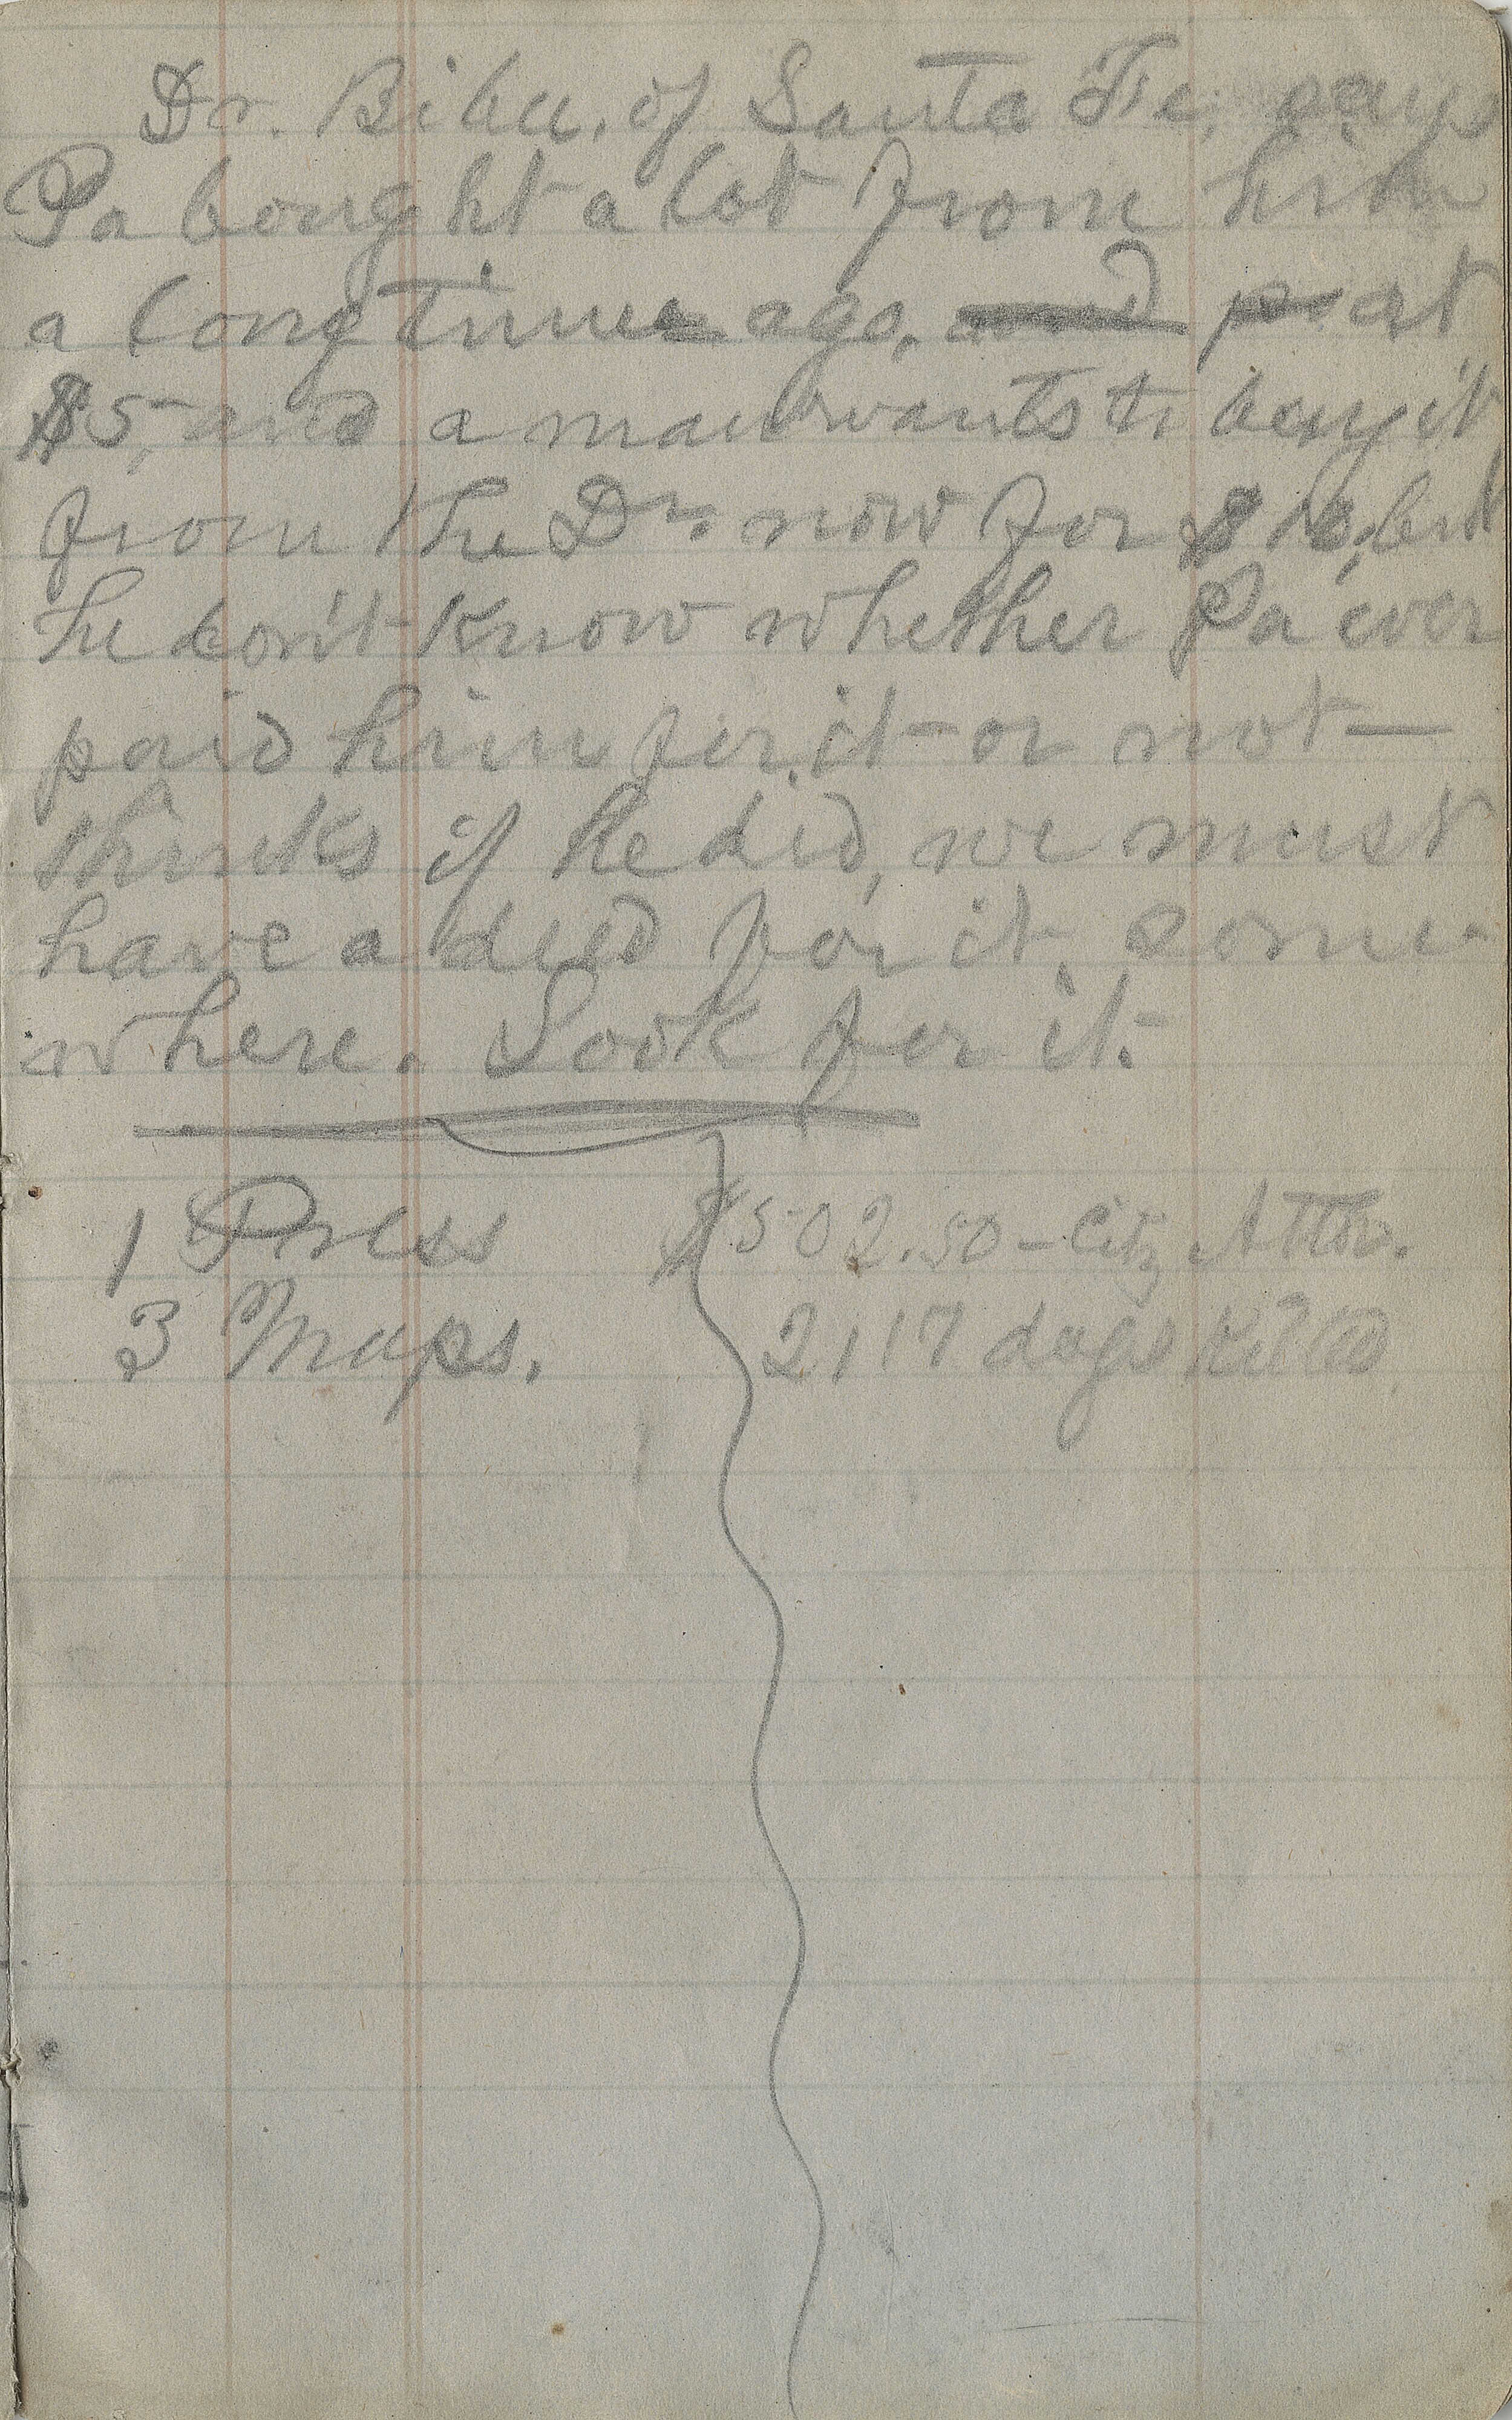 Dr. Bibu, of Santa Fe, says
Pa bought a lot from him
a long time ago, and at
$5, and a man wants to buy it
from the Dr. now for $10, but
he don't know whether Pa ever
paid him for it or not —
thinks if he did, we must
have a deed for it, some-
where. Look for it.
1 Press
3 Maps.
$502.50 – City Attn.
2117 dogs kil'd.